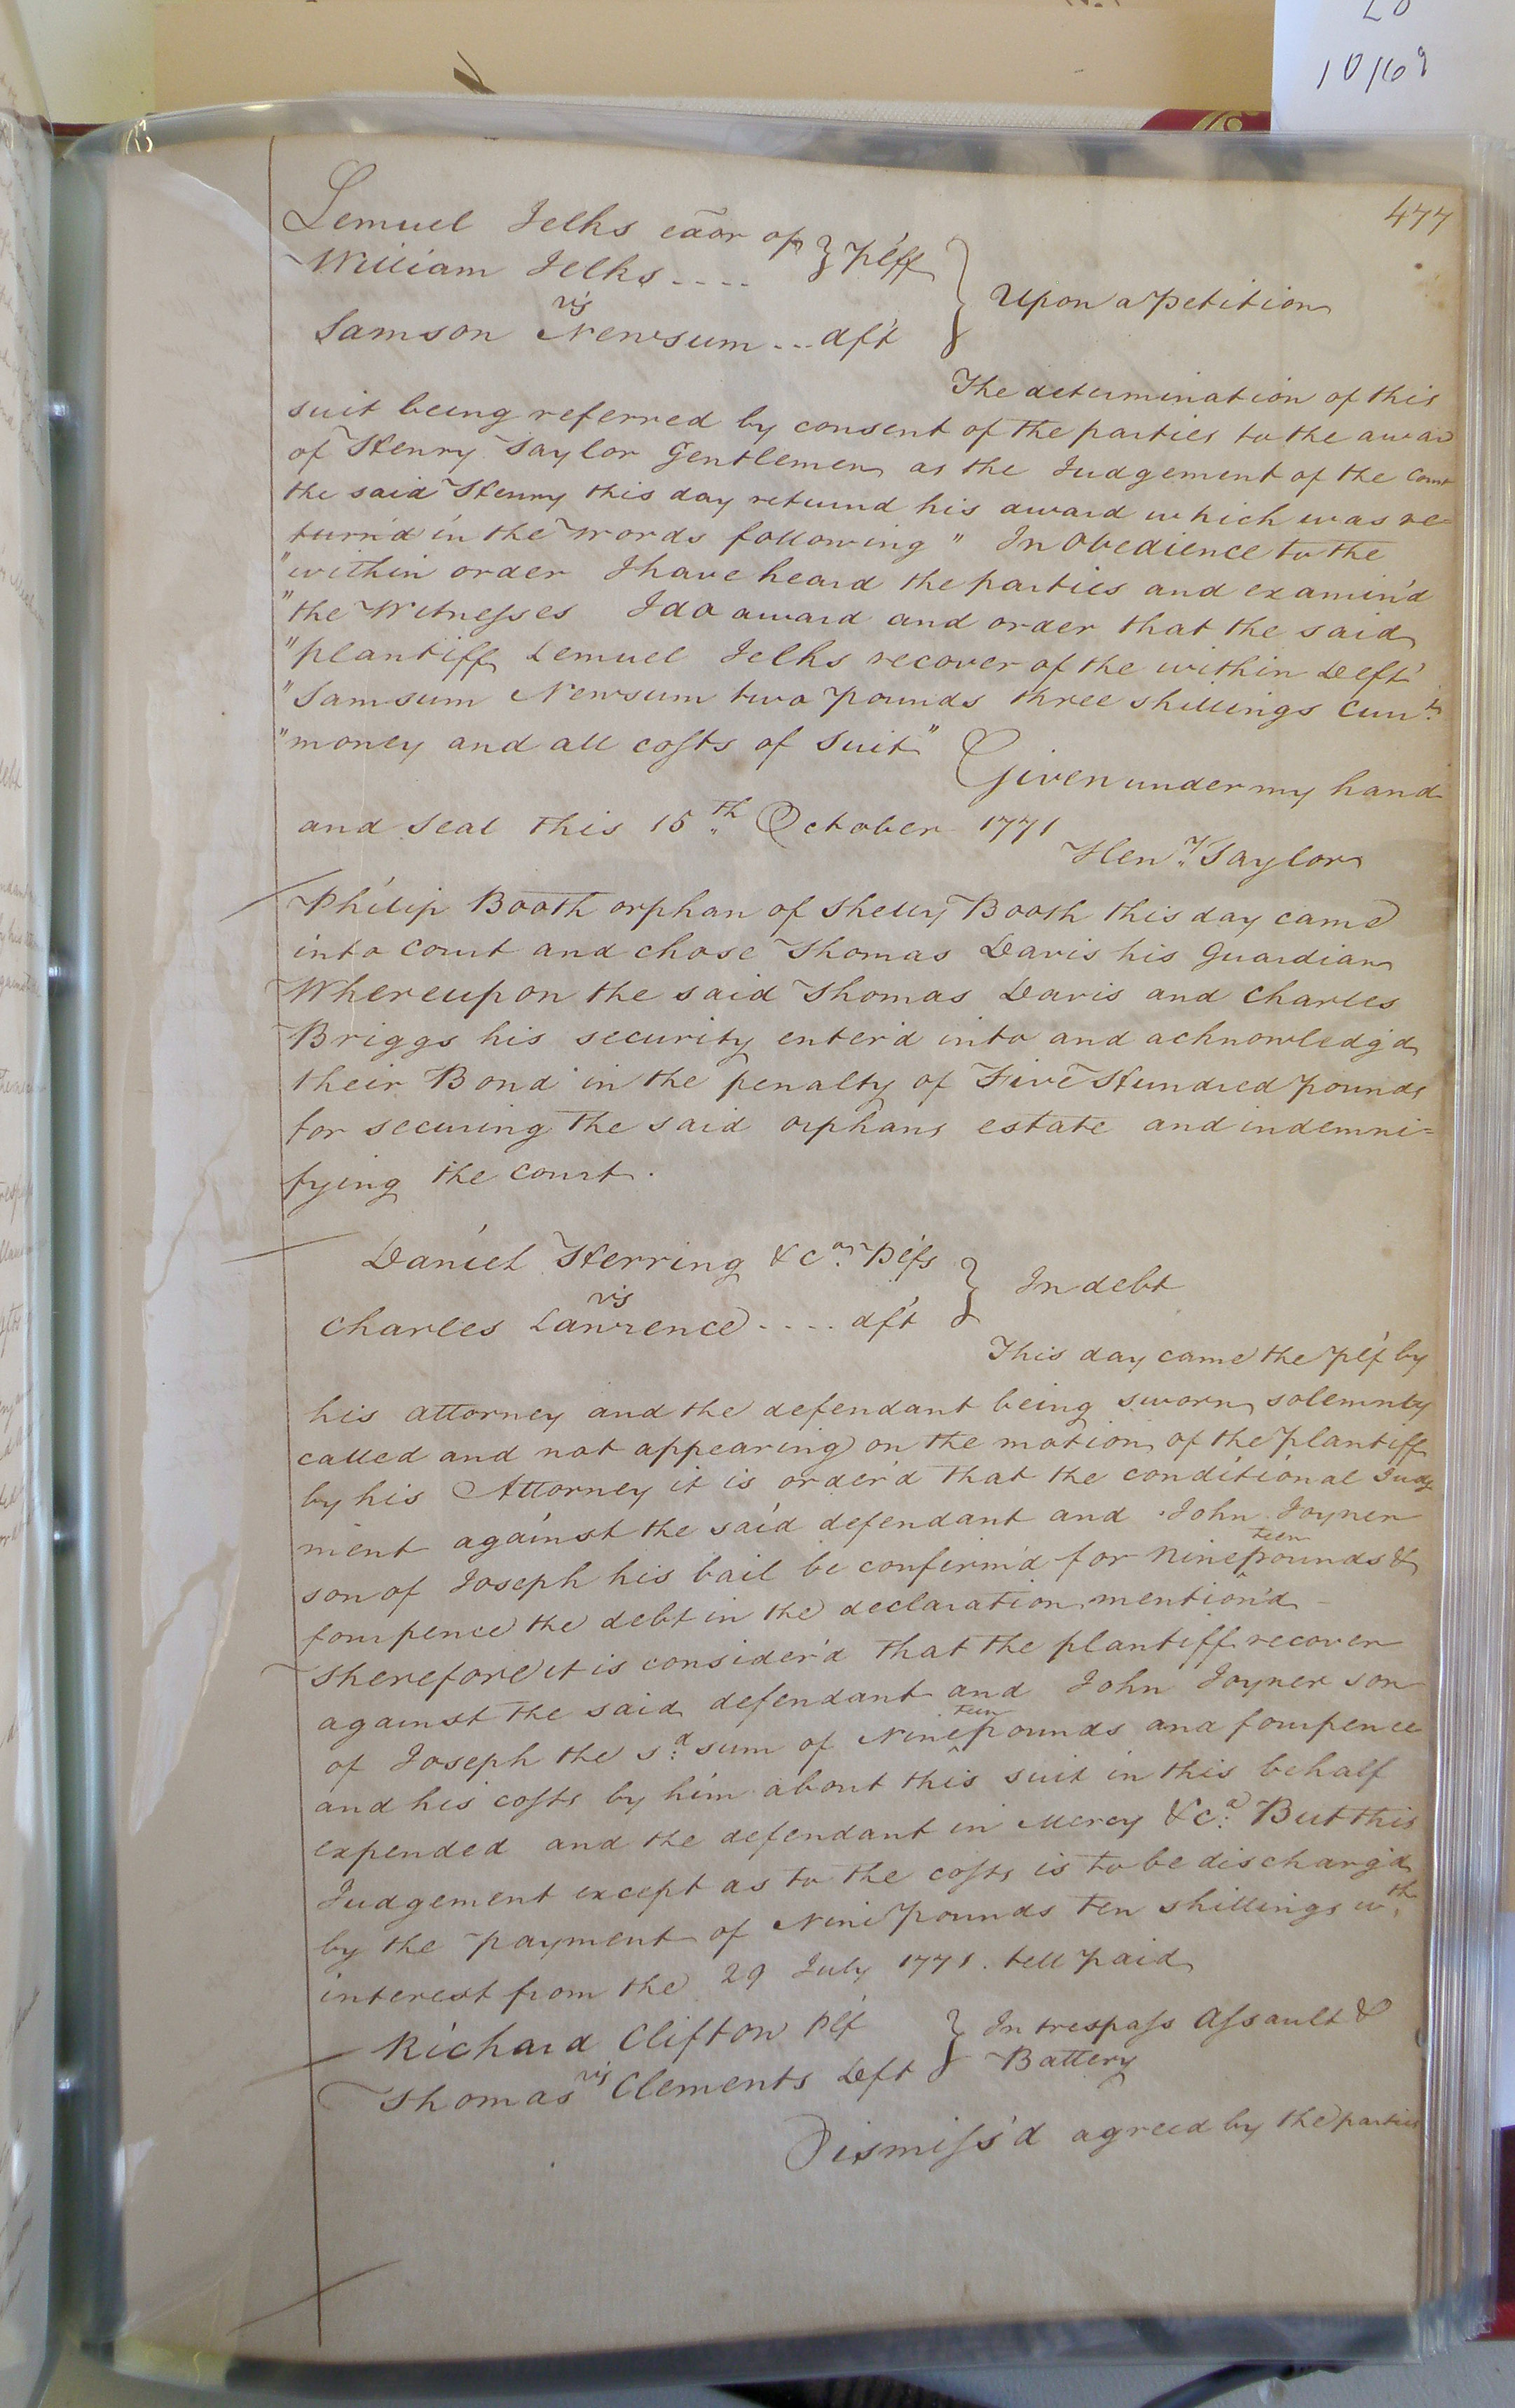 477
Lemuel Jelks exor of } plff
William Jelks ....
vs
Samson Newsum ... dft } Upon a Petition
The determination of this
suit being referred by consent of the parties to the award
of Henry Taylor Gentlemen as the Judgement of the Court
the said Henry this day returnd his award which was re=
turn'd in the Words following " In Obedience to the
"within order I have heard the parties and examin'd
"the Witnesses I do award and order that the said
"plantiff Lemuel Jelks recover of the within Deft
"Samsum Newsum two pounds three shillings Curr.t
"money and all costs of Suit" Given under my hand
and Seal this 15th October 1771
Hen.y Taylor
Philip Booth orphan of Shelly Booth this day came
into Court and chose Thomas Davis his Guardian
Whereupon the said Thomas Davis and Charles
Briggs his security enter'd into and acknowledg'd
their Bond in the penalty of Five Hundred pounds
for securing the said orphans estate and indemni=
fying the Court.
Daniel Herring & Ca. Plfs
vs
Charles Lawrence .... dft } In debt
This day came the plf by
his attorney and the defendant being sworn solemnly
called and not appearing on the motion of the plantiff
by his Attorney it is order'd that the conditional Judg
ment against the said defendant and John Joyner
son of Joseph his bail be confirm'd for Nineteen pounds &
fourpence the debt in the declaration mention'd
Therefore it is consider'd that the plantiff recover
against the said defendant and John Joyner son
of Joseph the s.d sum of Nineteen pounds and fourpence
and his costs by him about this suit in this behalf
expended and the defendant in Mercy &c.a But this
Judgement except as to the costs is to be discharg'd
by the payment of Nine Pounds ten shillings wth.
interest from the 29 July 1771. tell paid
Richard Clifton Plf
vs
Thomas Clements Deft } In trespass Assault &
Battery
Dismiss'd agreed by the parties